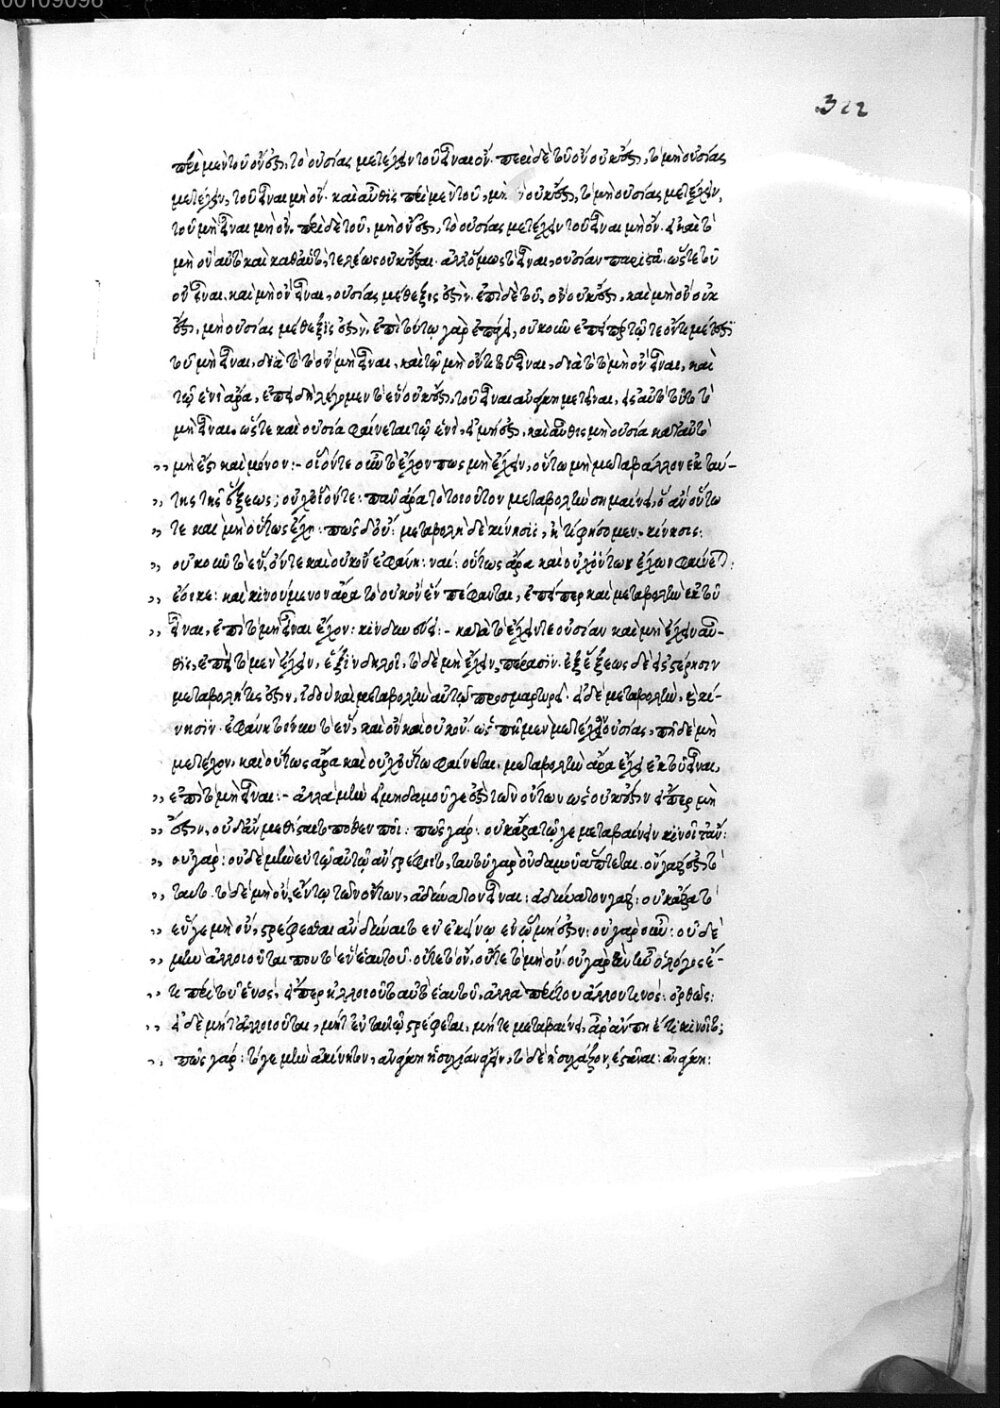 00109098
322
περὶ μὲν τοῦ ὄν ἐστι, τὸ οὐσίας μετέχειν τοῦ εἶναι ὄν. περὶ δὲ τοῦ ὂν οὐκ ἔστι, τὸ μὴ οὐσίας
μετέχειν, τοῦ εἶναι μὴ ὄν. καὶ αὖθις περὶ μὲν τοῦ, μὴ ὂν οὐκ ἔστι, τὸ μὴ οὐσίας μετέχειν,
τοῦ μὴ εἶναι μὴ ὄν. περὶ δὲ τοῦ, μὴ ὄν ἐστι, τὸ οὐσίας μετέχειν τοῦ εἶναι μὴ ὄν. καὶ τὸ
μὴ ὂν αὐτὸ καὶ καθ' αὑτὸ, τελέως οὐκ ἔσται. ἀλλ' ὅμως τὸ εἶναι, οὐσίαν παριστᾶ. ὥστε τοῦ
ὂν εἶναι, καὶ μὴ ὂν εἶναι, οὐσίας μέθεξις ἐστὶν. ἐπὶ δὲ τοῦ, ὂν οὐκ ἔστι, καὶ μὴ ὂν οὐκ
ἔστι, μὴ οὐσίας μέθεξις ἐστὶν. ἐπὶ τούτῳ γὰρ ἐπάγει, οὐκοῦν ἐπείπερ τῷ τε ὄντι μέτεστι
τοῦ μὴ εἶναι, διὰ τὸ τὸ ὂν μὴ εἶναι, καὶ τῷ μὴ ὄντι τοῦ εἶναι, διὰ τὸ τὸ μὴ ὂν εἶναι, καὶ
τῷ ἑνὶ ἄρα, ἐπειδὴ λέγομεν τὸ ἓν οὐκ ἔστι, τοῦ εἶναι ἀνάγκη μετεῖναι, εἰς αὐτὸ τοῦτο τὸ
μὴ εἶναι. ὥστε καὶ οὐσία φαίνεται τῷ ἑνὶ, εἰ μή ἐστι, καὶ αὖθις μὴ οὐσία κατ' αὐτὸ
,, μὴ ἔστι καὶ μόνον :- οἷόν τε οὖν τὸ ἔχον πως μὴ ἔχειν, οὕτω μὴ μεταβάλλον ἐκ ταύ-
,, της τῆς ἕξεως; οὐχ οἷόν τε : πᾶν ἄρα τὸ τοιοῦτον μεταβολὴν σημαίνει, ὃ ἂν οὕτω
,, τε καὶ μὴ οὕτως ἔχῃ : πῶς δ' οὔ : μεταβολὴ δὲ κίνησις, ἢ τί φήσομεν. κίνησις :
,, οὐκοῦν τὸ ἓν, ὄν τε καὶ οὐκ ὂν ἐφάνη : ναί : οὕτως ἄρα καὶ οὐχ οὕτως ἔχων φαίνεται :
,, ἔοικε : καὶ κινούμενον ἄρα τὸ οὐκ ὂν ἓν πέφανται, ἐπείπερ καὶ μεταβολὴν ἐκ τοῦ
,, εἶναι, ἐπὶ τὸ μὴ εἶναι ἔχον : κινδυνεύει :- κατὰ τὸ ἔχειν τε οὐσίαν καὶ μὴ ἔχειν αὖ-
θις, ἐπεὶ τὸ μὲν ἔχειν, ἕξιν δηλοῖ, τὸ δὲ μὴ ἔχειν, στέρησιν. ἐξ ἕξεως δὲ εἰς στέρησιν
μεταβολή τις ἐστὶν, ἰδοὺ καὶ μεταβολὴν αὐτῷ προσμαρτυρεῖ. εἰ δὲ μεταβολὴν, καὶ κί-
νησιν. ἐφάνη τοίνυν τὸ ἓν, καὶ ὂν καὶ οὐκ ὄν. ὡς πῇ μὲν μετέχον οὐσίας, πῇ δὲ μὴ
μετέχον. καὶ οὕτως ἄρα καὶ οὐχ οὕτω φαίνεται. μεταβολὴν ἄρα ἔχει ἐκ τοῦ εἶναι,
,, ἐπὶ τὸ μὴ εἶναι :- ἀλλὰ μὴν εἰ μηδαμοῦ γέ ἐστι τῶν ὄντων ὡς οὐκ ἔστιν εἴπερ μὴ
,, ἔστιν, οὐδ' ἂν μεθίσταιτο ποθέν ποι : πῶς γάρ. οὐκ ἄρα τῷ γε μεταβαίνειν κινοῖτ' ἄν :
,, οὐ γάρ : οὐδὲ μὴν ἐν τῷ αὐτῷ ἂν στρέφοιτο, ταὐτοῦ γὰρ οὐδαμοῦ ἅπτεται. ὂν γάρ ἐστι τὸ
,, ταὐτό. τὸ δὲ μὴ ὂν, ἔν τῳ τῶν ὄντων, ἀδύνατον εἶναι : ἀδύνατον γάρ : οὐκ ἄρα τὸ
,, ἕν γε μὴ ὂν, στρέφεσθαι ἂν δύναιτο ἐν ἐκείνῳ ἐν ᾧ μή ἐστιν : οὐ γὰρ οὖν : οὐδὲ
,, μὴν ἀλλοιοῦται που τὸ ἓν ἑαυτοῦ. οὔτε τὸ ὂν, οὔτε τὸ μὴ ὄν. οὐ γὰρ ἂν ἦν ὁ λόγος ἔ-
,, τι περὶ τοῦ ἑνὸς, εἴπερ ἠλλοιοῦτο αὐτὸ ἑαυτοῦ, ἀλλὰ περὶ του ἄλλου τινός : ὀρθῶς :
,, εἰ δὲ μήτ' ἀλλοιοῦται, μήτ' ἐν ταυτῷ στρέφεται, μήτε μεταβαίνει, ἆρ' ἄν πῃ ἔτι κινοῖτο;
,, πῶς γάρ : τό γε μὴν ἀκίνητον, ἀνάγκη ἡσυχίαν ἄγειν, τὸ δὲ ἡσυχάζον, ἑστάναι : ἀνάγκη :